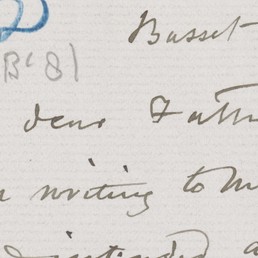 Busset
B' 81
dear Fath
writing to M
intended a